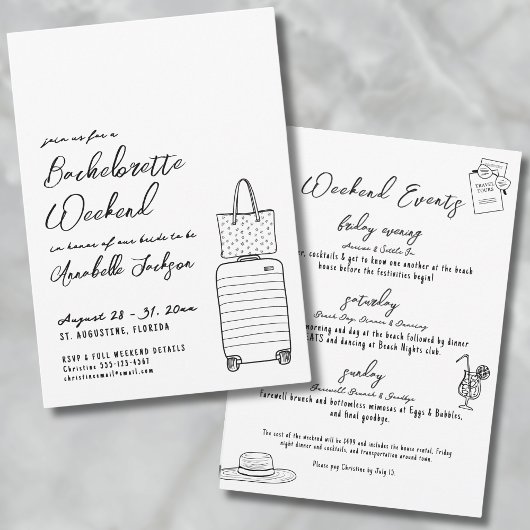 join us for a
Bachelorette
Weekend
in honor of our bride to be
Annabelle Jackson
August 28 - 31, 20xx
ST. AUGUSTINE, FLORIDA
RSVP & FULL WEEKEND DETAILS
Christine 555-123-4567
christinesemail@email.com
TRAVEL
TOURS
Weekend Events
friday evening
Arrive & Settle In
, cocktails & get to know one another at the beach
house before the festivities begin!
saturday
Beach Day, Dinner & Dancing
morning and day at the beach followed by dinner
EATS and dancing at Beach Nights club.
sunday
Farewell Brunch & Goodbye
Farewell brunch and bottomless mimosas at Eggs & Bubbles,
and final goodbye.
The cost of the weekend will be $699 and includes the house rental, Friday
night dinner and cocktails, and transportation around town.
Please pay Christine by July 15.